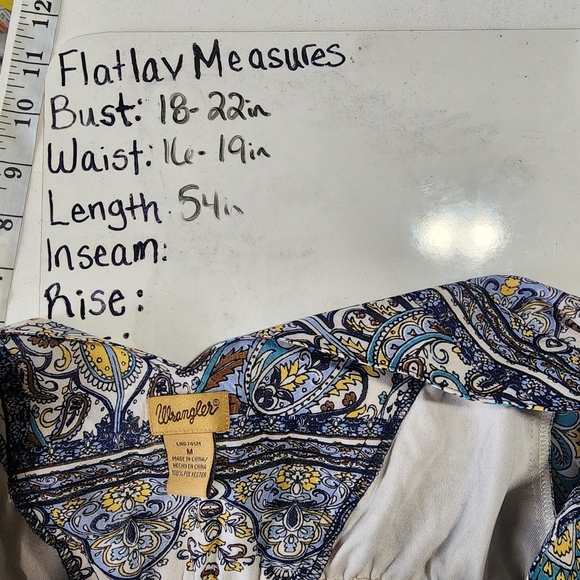 12
11
10
9
8
Flatlav Measures
Bust: 18-22in
Waist: 16-19in
Length. 54in
Inseam:
Rise:
Wrangler
M
MADE IN CHINA/
HECHO EN CHINA
100% POLYESTER